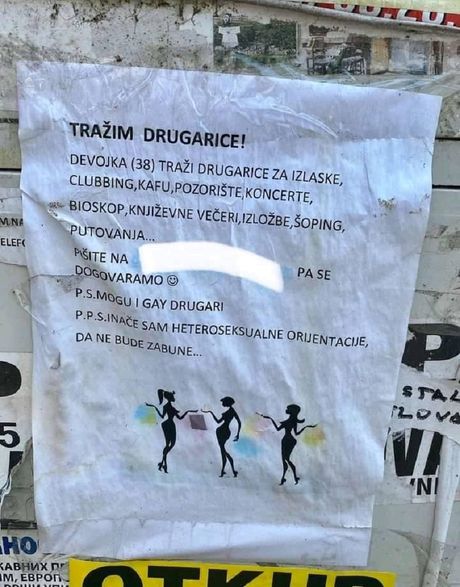 TRAŽIM DRUGARICE!
DEVOJKA (38) TRAŽI DRUGARICE ZA IZLASKE,
CLUBBING,KAFU,POZORIŠTE,KONCERTE,
BIOSKOP,KNJIŽEVNE VEČERI,IZLOŽBE,ŠOPING,
PUTOVANJA...
PIŠITE NA PA SE
DOGOVARAMO ☺
P.S.MOGU I GAY DRUGARI
P.P.S.INAČE SAM HETEROSEKSUALNE ORIJENTACIJE,
DA NE BUDE ZABUNE...
ОТКУП